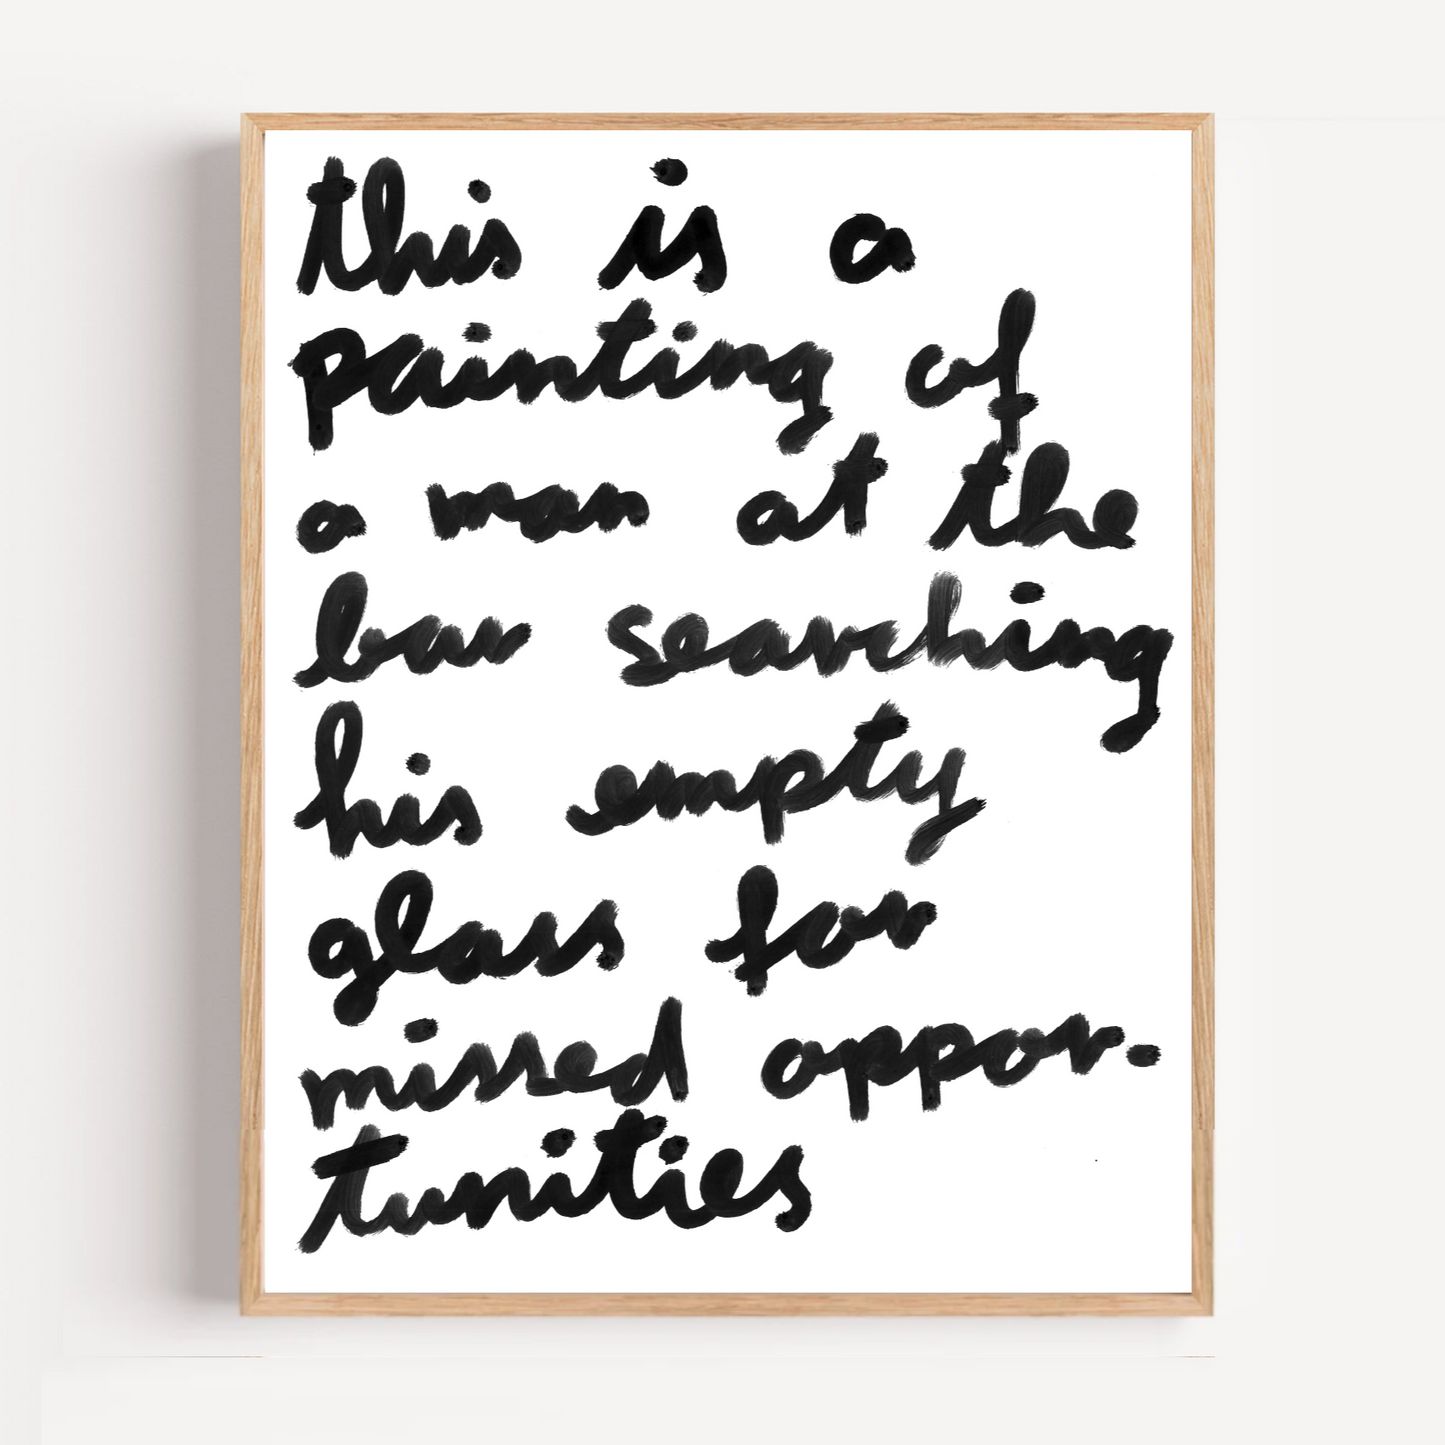 this is a
painting of
a man at the
bar searching
his empty
glass for
missed oppor-
tunities